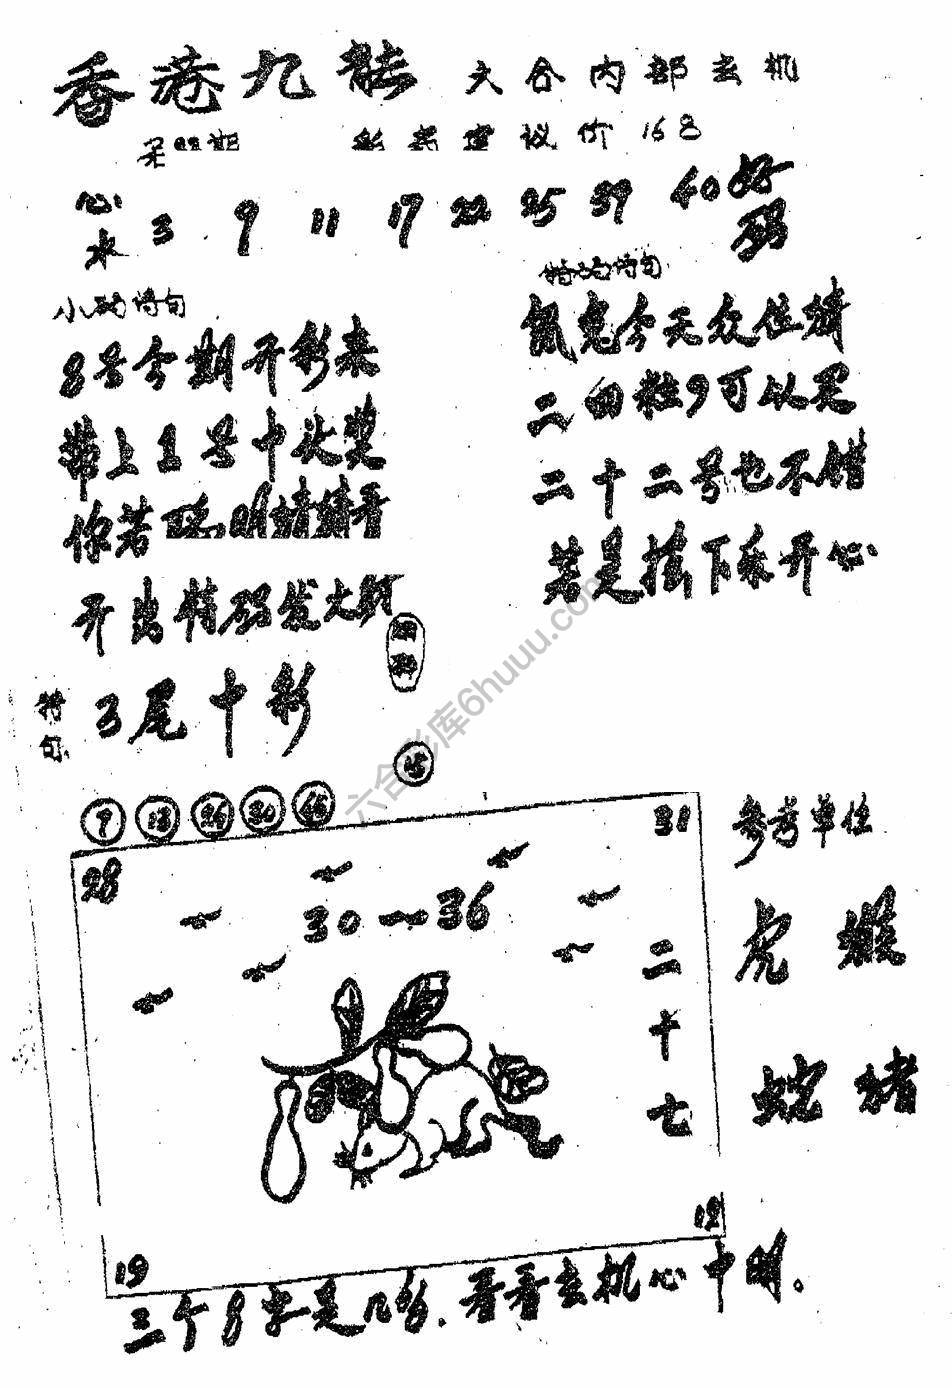 香港九龍 六合内部玄机
彩民建议价168
心水 3 9 11 17 22 25 39 40 好码
小码诗句
8号今期开彩来
带上王号中头奖
你若聪明猜猜看
开出特码发大财
特码诗句
鼠兔今天众位猜
二四粒9可以买
二十二号也不错
若是搖下乐开心
特句 3尾十彩
15
7 13 26 30 45
28 31
30—36
二十七
19 12
参考单位
虎 猴
蛇 猪
三个8字是几多.看看玄机心中明.
六合彩库6huuu.com